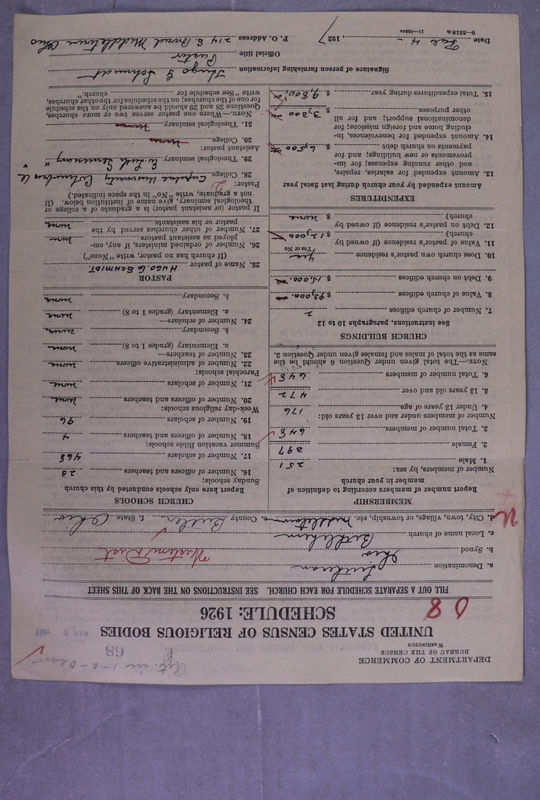 DEPARTMENT OF COMMERCE
BUREAU OF THE CENSUS
WASHINGTON
68
UNITED STATES CENSUS OF RELIGIOUS BODIES
SCHEDULE: 1926
FILL OUT A SEPARATE SCHEDULE FOR EACH CHURCH. SEE INSTRUCTIONS ON THE BACK OF THIS SHEET
a. Denomination Lutheran
b. Synod Ohio Western Dist
c. Local name of church Bethlehem
d. City, town, village, or township, etc. Middletown e. County Butler f. State Ohio
MEMBERSHIP
Report number of members according to definition of
member in your church
Number of members, by sex:
1. Male 251
2. Female 397
3. Total number of members 648
Number of members under and over 13 years old:
4. Under 13 years of age 176
5. 13 years old and over 472
6. Total number of members 648
NOTE.—The total given under Question 6 should be the
same as the total of males and females given under Question 3.
CHURCH BUILDINGS
See instructions, paragraphs 10 to 12
7. Number of church edifices 2
8. Value of church edifices $
9. Debt on church edifices $
10. Does church own pastor's residence yes
Yes or No
11. Value of pastor's residence (if owned by
church) $ 12,000
12. Debt on pastor's residence (if owned by
church) $ none
EXPENDITURES
Amount expended by your church during last fiscal year
13. Amount expended for salaries, repairs,
and other running expenses; for im-
provements or new buildings; and for
payments on church debt $ 6,500
14. Amount expended for benevolences, in-
cluding home and foreign missions; for
denominational support; and for all
other purposes $ 3,300
15. Total expenditures during year $ 9,800
CHURCH SCHOOLS
Report here only schools conducted by this church
Sunday schools:
16. Number of officers and teachers 23
17. Number of scholars 468
Summer vacation Bible schools:
18. Number of officers and teachers 4
19. Number of scholars 96
Week-day religious schools:
20. Number of officers and teachers none
21. Number of scholars none
Parochial schools:
22. Number of administrative officers none
23. Number of teachers—
a. Elementary (grades 1 to 8) none
b. Secondary none
24. Number of scholars—
a. Elementary (grades 1 to 8) none
b. Secondary none
PASTOR
25. Name of pastor HUGO G. SCHMIDT.
(If church has no pastor, write "None")
26. Number of ordained ministers, if any, em-
ployed as assistant pastors none
27. Number of other churches served by the
pastor or his assistants none
If pastor (or assistant pastor) is a graduate of a college or
theological seminary, give name of institution below. (If
not a graduate, write "No," in the space indicated.)
Pastor:
28. College Capital University Columbus O.
29. Theological seminary Ev. Luth Seminary "
Assistant pastor:
30. College none
31. Theological seminary none
NOTE.—Where one pastor serves two or more churches,
Questions 28 and 29 should be answered only on the schedule
for one of the churches; on the schedules for the other churches,
write "See schedule for church."
Signature of person furnishing information Hugo G Schmidt
Official title Pastor
Date 192 P. O. Address 214 E. Broad Middletown Ohio